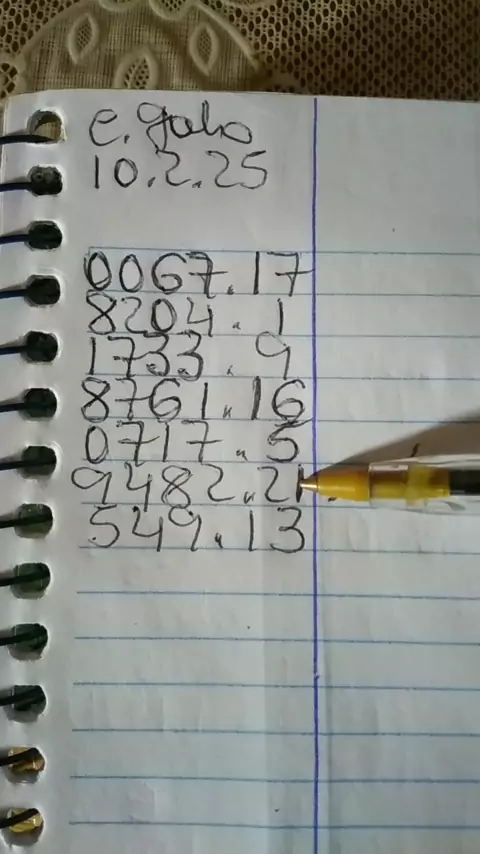 e. Galo
10.2.25
0067.17
8204.1
1733.9
8761.16
0717.5
9482.21
549.13